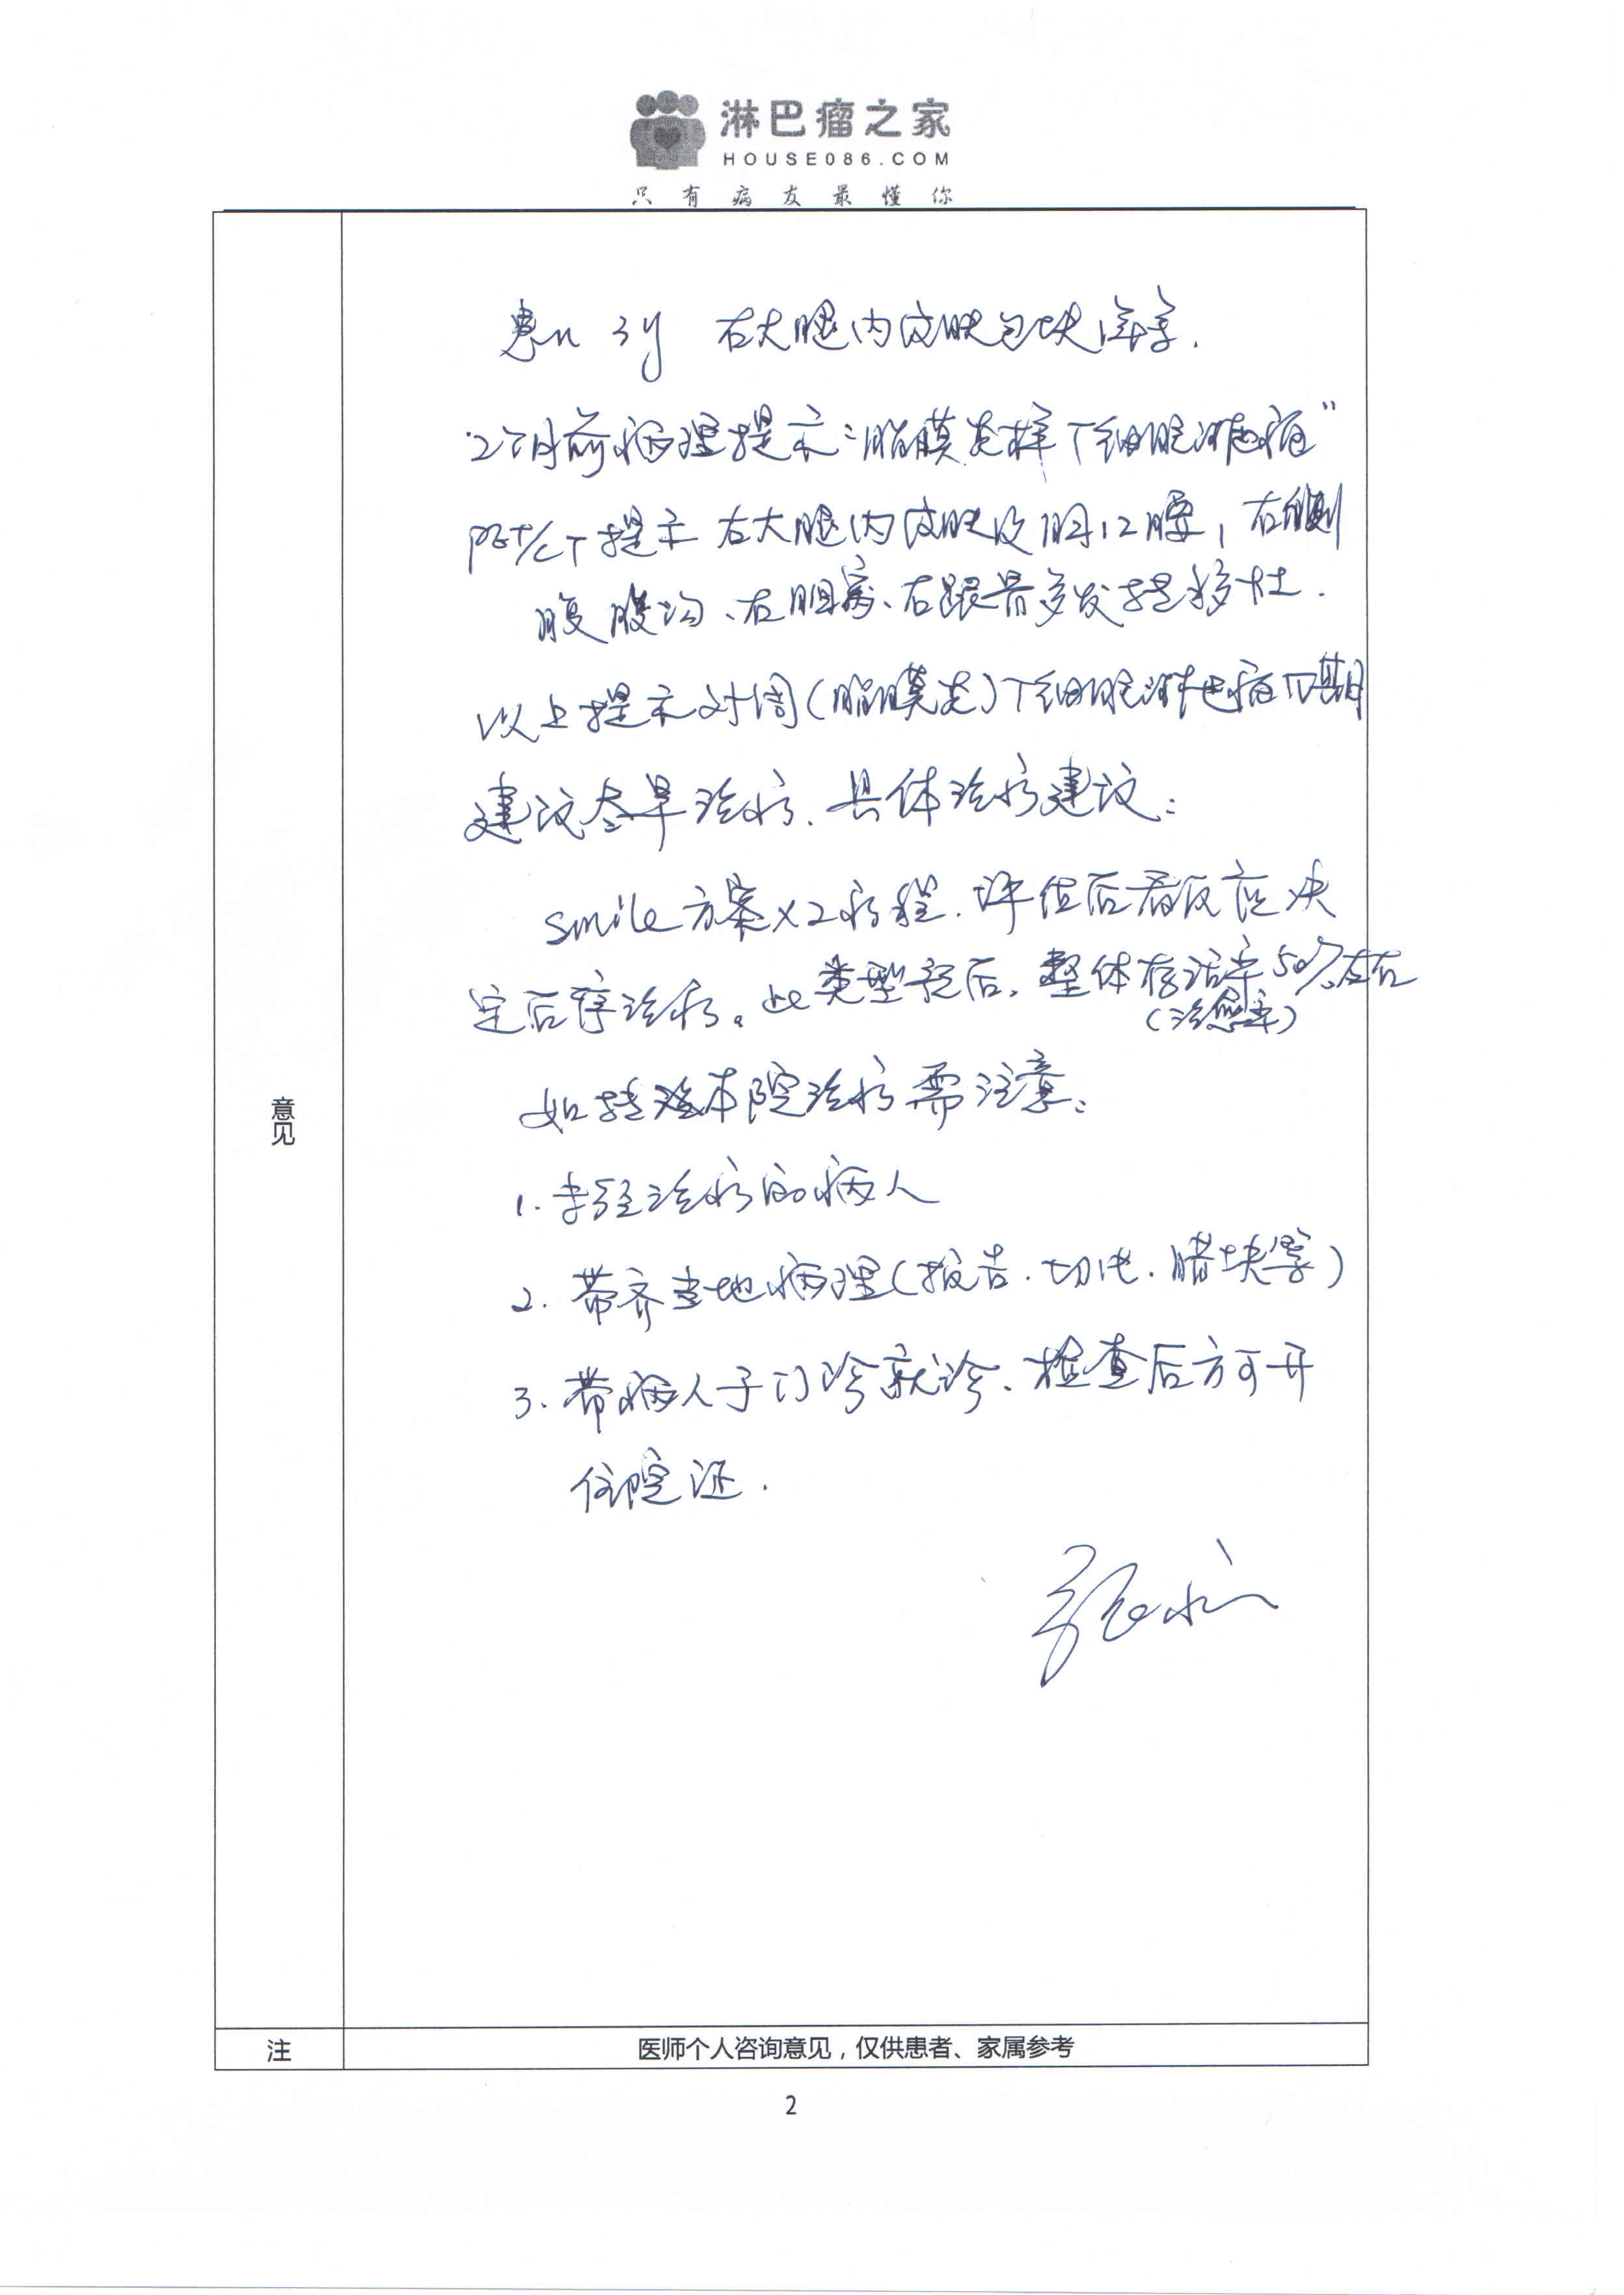 淋巴瘤之家
HOUSE086.COM
只有病友最懂你
患儿 3y 右大腿内皮肤包块
2个月前病理提示:"脂膜炎样T细胞淋巴瘤"
PET/CT提示 右大腿内皮肤及 右侧
腹股沟、右腘窝、右跟骨多发转移灶.
以上提示外周(脂膜炎)T细胞淋巴瘤IV期
建议尽早治疗.具体治疗建议:
smile方案×2疗程.评估后看反应决
定后序治疗。此类型预后,整体存活率50%左右
(治愈率)
如转来本院治疗需注意:
1. 未经治疗的病人
2. 带齐当地病理(报告.切片.腊块等)
3. 带病人于门诊就诊、检查后方可开
住院证.
意见
注
医师个人咨询意见,仅供患者、家属参考
2